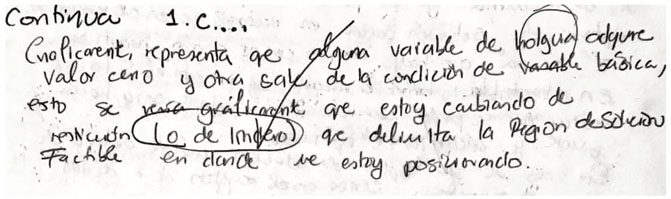 Continua 1.c....
Graficament, representa qe alguna variable de holgua adqure
valor cero y otra sale de la condición de variable básica,
esto se graficament qe estoy cambiando de
restricción (o de lindero) qe delimita la Region de Solución
Factible en donde me estoy posicionando.